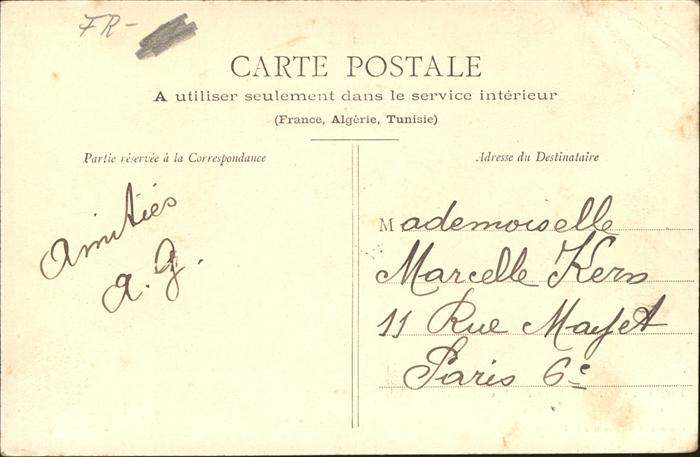 FR-
CARTE POSTALE
A utiliser seulement dans le service intérieur
(France, Algérie, Tunisie)
Partie réservée à la Correspondance
Amitiés
A. G.
Adresse du Destinataire
Mademoiselle
Marcelle Kern
11 Rue Mayet
Paris 6e